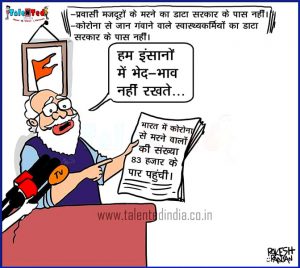 TALENTED
India
-प्रवासी मजदूरों के मरने का डाटा सरकार के पास नहीं।
-कोरोना से जान गंवाने वाले स्वास्थ्यकर्मियों का डाटा
सरकार के पास नहीं।
हम इंसानों
में भेद-भाव
नहीं रखते...
भारत में कोरोना
से मरने वालों
की संख्या
83 हजार के
पार पहुंची।
TV
www.talentedindia.co.in
RAJAN